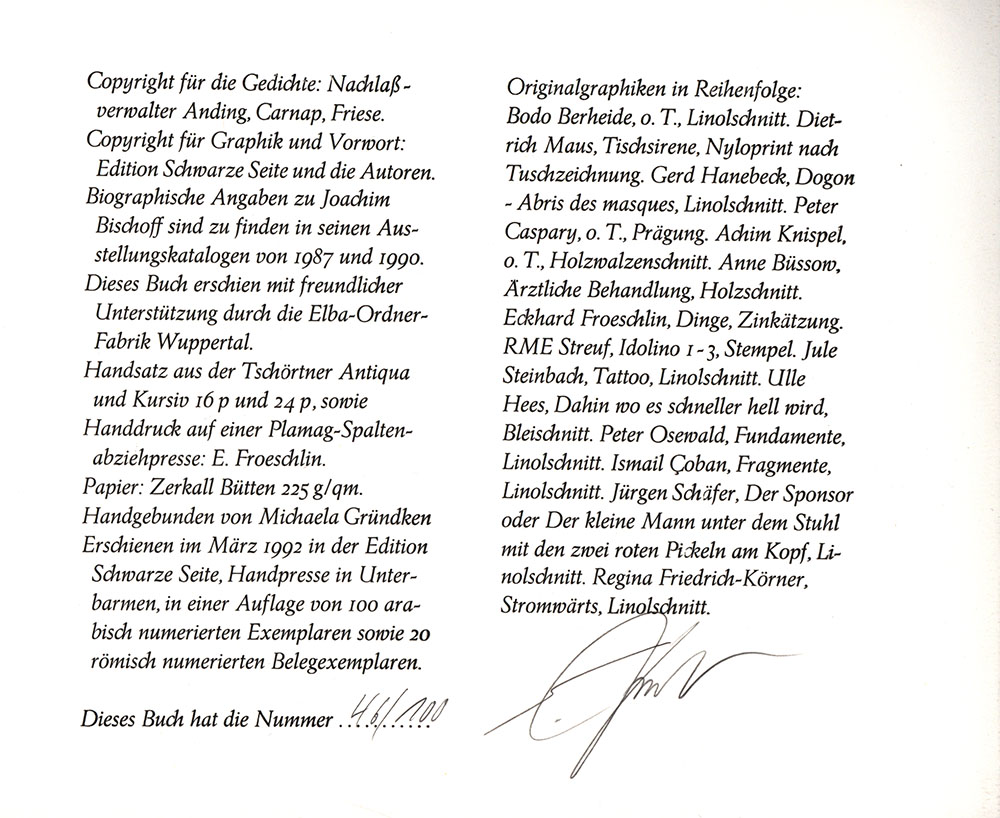 Copyright für die Gedichte: Nachlaß-
verwalter Anding, Carnap, Friese.
Copyright für Graphik und Vorwort:
Edition Schwarze Seite und die Autoren.
Biographische Angaben zu Joachim
Bischoff sind zu finden in seinen Aus-
stellungskatalogen von 1987 und 1990.
Dieses Buch erschien mit freundlicher
Unterstützung durch die Elba-Ordner-
Fabrik Wuppertal.
Handsatz aus der Tschörtner Antiqua
und Kursiv 16 p und 24 p, sowie
Handdruck auf einer Plamag-Spalten-
abziehpresse: E. Froeschlin.
Papier: Zerkall Bütten 225 g/qm.
Handgebunden von Michaela Gründken
Erschienen im März 1992 in der Edition
Schwarze Seite, Handpresse in Unter-
barmen, in einer Auflage von 100 ara-
bisch numerierten Exemplaren sowie 20
römisch numerierten Belegexemplaren.
Dieses Buch hat die Nummer 46/100
Originalgraphiken in Reihenfolge:
Bodo Berheide, o. T., Linolschnitt. Diet-
rich Maus, Tischsirene, Nyloprint nach
Tuschzeichnung. Gerd Hanebeck, Dogon
- Abris des masques, Linolschnitt. Peter
Caspary, o. T., Prägung. Achim Knispel,
o. T., Holzwalzenschnitt. Anne Büssow,
Ärztliche Behandlung, Holzschnitt.
Eckhard Froeschlin, Dinge, Zinkätzung.
RME Streuf, Idolino 1-3, Stempel. Jule
Steinbach, Tattoo, Linolschnitt. Ulle
Hees, Dahin wo es schneller hell wird,
Bleischnitt. Peter Osewald, Fundamente,
Linolschnitt. Ismail Çoban, Fragmente,
Linolschnitt. Jürgen Schäfer, Der Sponsor
oder Der kleine Mann unter dem Stuhl
mit den zwei roten Pickeln am Kopf, Li-
nolschnitt. Regina Friedrich-Körner,
Stromwärts, Linolschnitt.